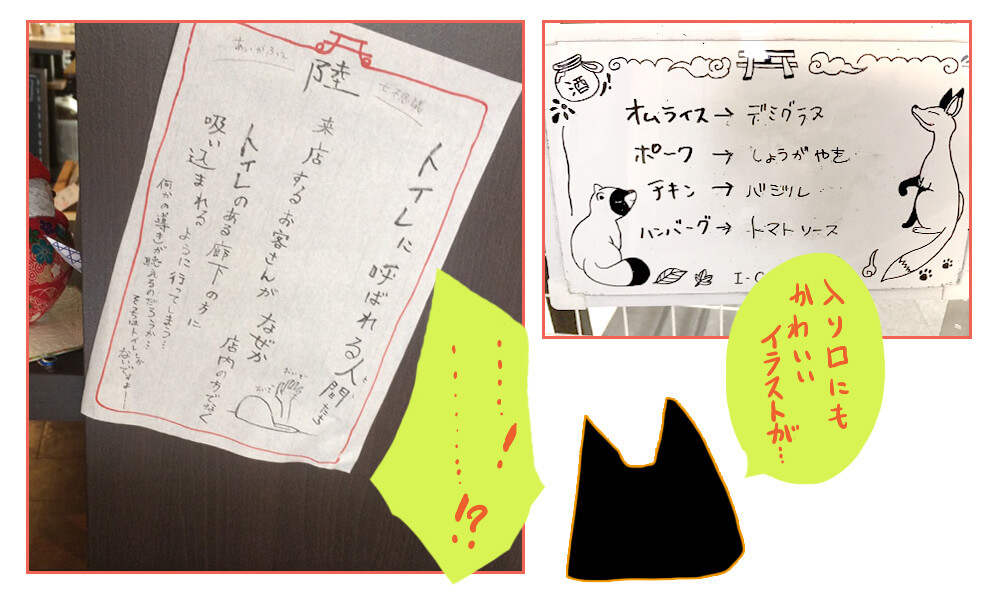 あいかふぇ
七不思議
陸
トイレに呼ばれる人間たち
来店するお客さんがなぜか
店内の方でなく
トイレのある廊下の方に
吸い込まれるように行ってしまう…
何かの導きが聴こえるのだろうか…
そちらはトイレしか
ないですよー
おいで
おいで
酒
オムライス→デミグラス
ポーク→しょうがやき
チキン→バジル
ハンバーグ→トマトソース
入り口にも
かわいい
イラストが…
……!
………!?